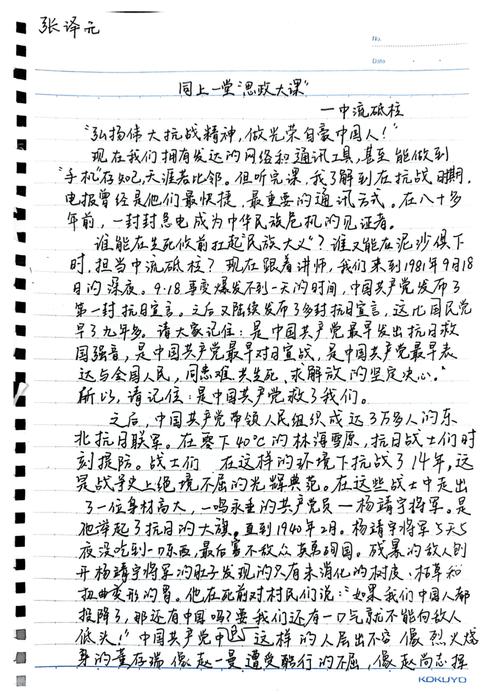 张译元
No.
Date
同上一堂"思政大课"
—中流砥柱
"弘扬伟大抗战精神，做光荣自豪中国人！"
现在我们拥有发达的网络和通讯工具，甚至能做到
"手机"存知己，天涯若比邻。但听完课，我了解到在抗战时期，
电报曾经是他们最快捷、最重要的通讯方式。在八十多
年前，一封封急电成为中华民族危机的见证者。
谁能在生死攸前扛起"民族大义"？谁又能在泥沙俱下
时，担当中流砥柱？现在跟着讲师，我们来到1981年9月18
日的深夜。9·18事变爆发不到一天的时间，中国共产党发布了
第一封抗日宣言。之后又陆续发布了多封抗日宣言，这比国民党
早了九年多。请大家记住：是中国共产党最早发出抗日救
国强音，是中国共产党最早对日宣战，是中国共产党最早表
达与全国人民，同患难、共生死、求解放的坚定决心。"
所以，请记住：是中国共产党救了我们。
之后，中国共产党带领人民组织成达3万多人的东
北抗日联军。在零下40℃的林海雪原，抗日战士们时
刻提防。战士们 在这样的环境下抗战了14年，这
是战争史上绝境不屈的光辉典范。在这些战士中走出
了一位身材高大，一鸣永垂的共产党员—杨靖宇将军。是
他举起了抗日的大旗。直到1940年2月。杨靖宇将军5天5
夜没吃到一口东西，最后寡不敌众英勇殉国。残暴的敌人剖
开杨靖宇将军的肚子发现的只有未消化的树皮、枯草和
扭曲变形的胃。他在死前对村民们说："如果我们中国人都
投降了，那还有中国吗？要我们还有一口气就不能向敌人
低头！"中国共产党中 这样的人层出不穷 像烈火烧
身的董存瑞 像赵一曼遭受酷行的不屈，像赵尚志挥
KOKUYO